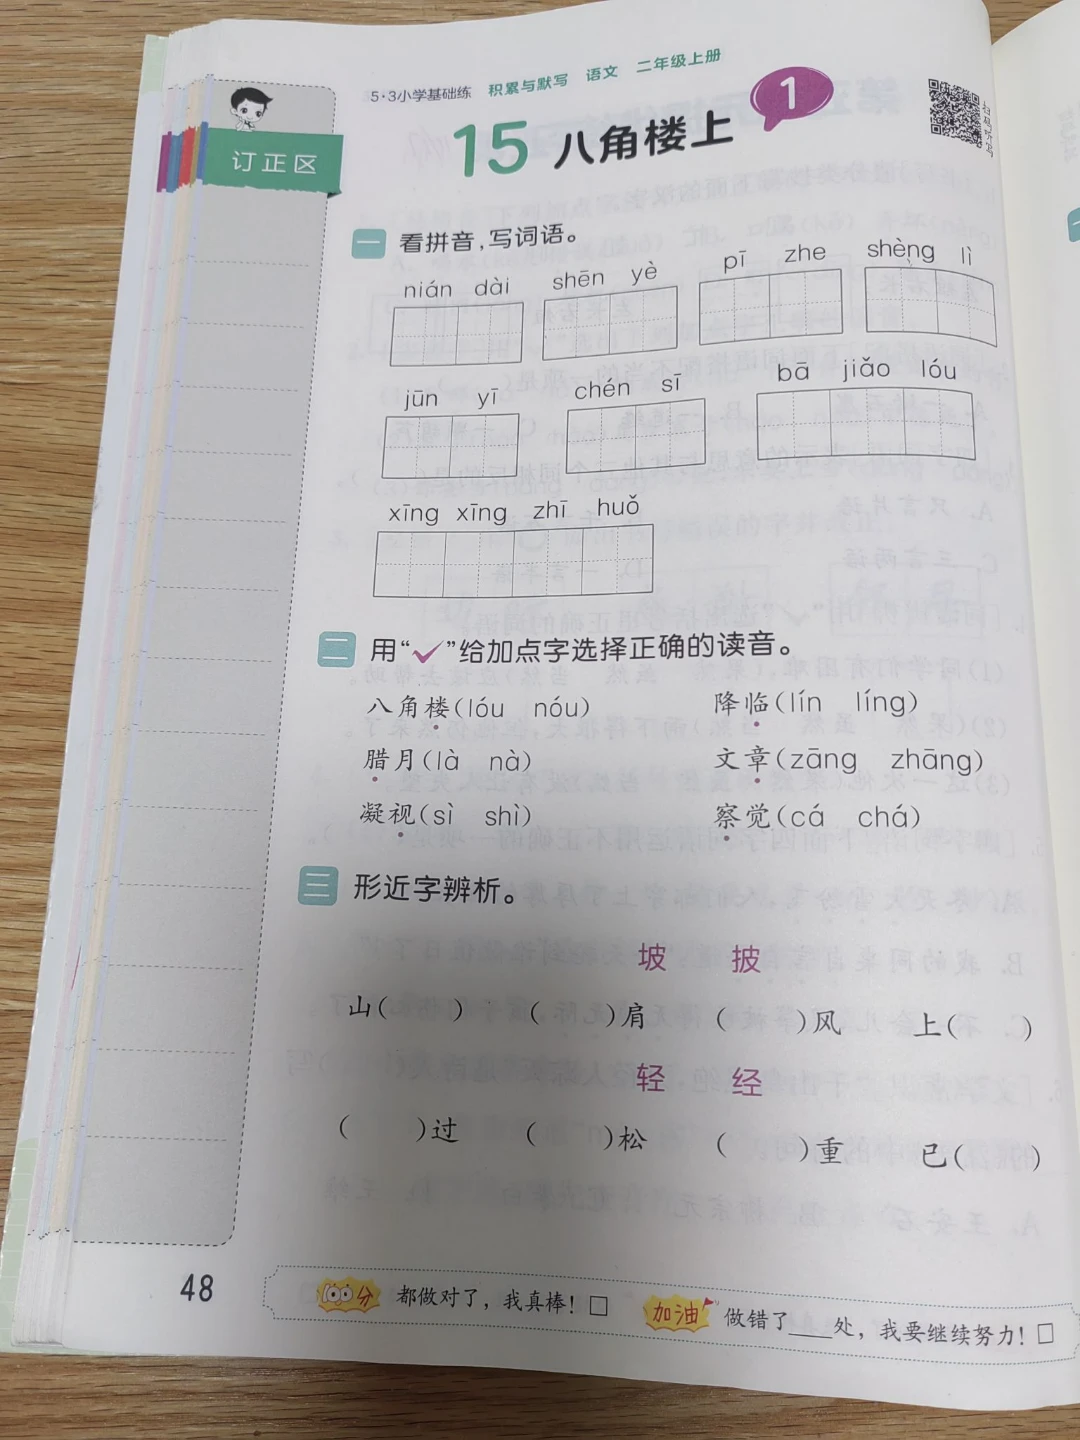 5·3小学基础练 积累与默写 语文 二年级上册
订正区
15 八角楼上 1
一 看拼音,写词语。
nián dài shēn yè pī zhe shèng lì
jūn yī chén sī bā jiǎo lóu
xīng xīng zhī huǒ
二 用“✓”给加点字选择正确的读音。
八角楼(lóu nóu) 降临(lín líng)
腊月(là nà) 文章(zāng zhāng)
凝视(sì shì) 察觉(cá chá)
三 形近字辨析。
坡 披
山( ) ( )肩 ( )风 上( )
轻 经
( )过 ( )松 ( )重 已( )
48
100分 都做对了，我真棒！□ 加油 做错了___处，我要继续努力！□